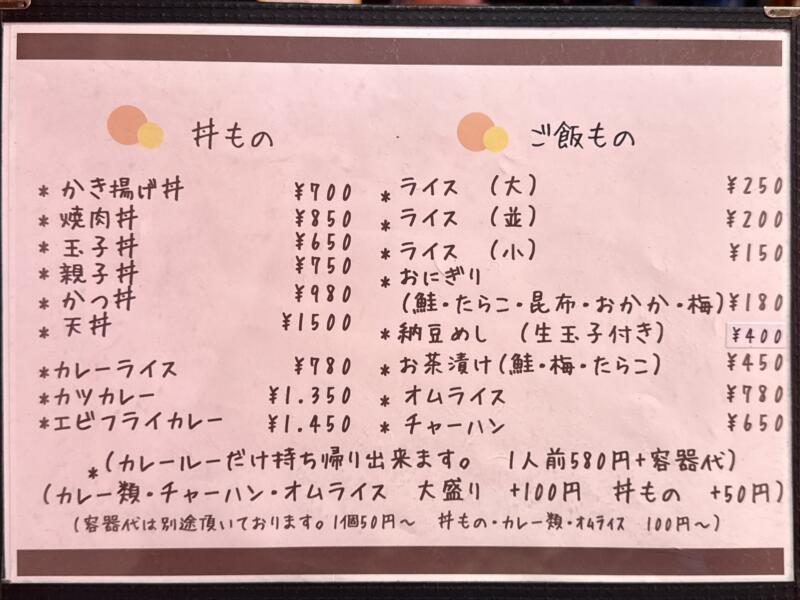 丼もの
* かき揚げ丼 ¥700
* 焼肉丼 ¥850
* 玉子丼 ¥650
* 親子丼 ¥750
* かつ丼 ¥980
* 天丼 ¥1500
* カレーライス ¥780
* カツカレー ¥1.350
* エビフライカレー ¥1.450
ご飯もの
* ライス (大) ¥250
* ライス (並) ¥200
* ライス (小) ¥150
* おにぎり
(鮭・たらこ・昆布・おかか・梅) ¥180
* 納豆めし (生玉子付き) ¥400
* お茶漬け(鮭・梅・たらこ) ¥450
* オムライス ¥780
* チャーハン ¥650
* (カレールーだけ持ち帰り出来ます。 1人前580円+容器代)
(カレー類・チャーハン・オムライス 大盛り +100円 丼もの +50円)
(容器代は別途頂いております。1個50円~ 丼もの・カレー類・オムライス 100円~)